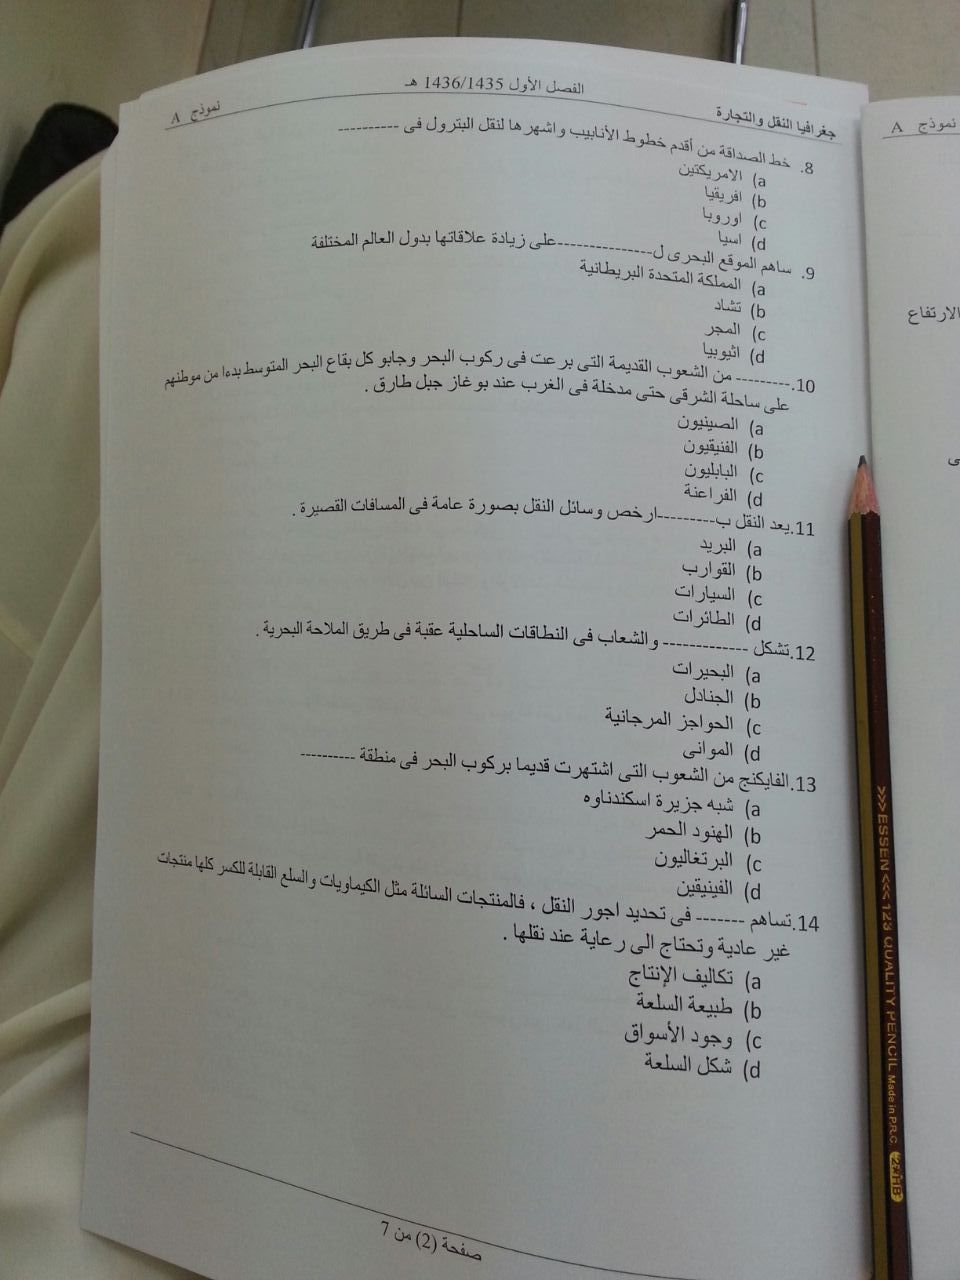 الفصل الأول 1436/1435 هـ
جغرافيا النقل والتجارة
نموذج A
8. خط الصداقة من أقدم خطوط الأنابيب واشهرها لنقل البترول فى ----------
a) الامريكتين
b) افريقيا
c) اوروبا
d) اسيا
9. ساهم الموقع البحرى ل---------------على زيادة علاقاتها بدول العالم المختلفة
a) المملكة المتحدة البريطانية
b) تشاد
c) المجر
d) اثيوبيا
10.--------- من الشعوب القديمة التى برعت فى ركوب البحر وجابو كل بقاع البحر المتوسط بدءا من موطنهم
على ساحلة الشرقى حتى مدخلة فى الغرب عند بوغاز جبل طارق .
a) الصينيون
b) الفنيقيون
c) البابليون
d) الفراعنة
11.يعد النقل ب---------ارخص وسائل النقل بصورة عامة فى المسافات القصيرة .
a) البريد
b) القوارب
c) السيارات
d) الطائرات
12.تشكل ------------- والشعاب فى النطاقات الساحلية عقبة فى طريق الملاحة البحرية .
a) البحيرات
b) الجنادل
c) الحواجز المرجانية
d) الموانى
13.الفايكنج من الشعوب التى اشتهرت قديما بركوب البحر فى منطقة ----------
a) شبه جزيرة اسكندناوه
b) الهنود الحمر
c) البرتغاليون
d) الفينيقين
14.تساهم ------- فى تحديد اجور النقل ، فالمنتجات السائلة مثل الكيماويات والسلع القابلة للكسر كلها منتجات
غير عادية وتحتاج الى رعاية عند نقلها .
a) تكاليف الإنتاج
b) طبيعة السلعة
c) وجود الأسواق
d) شكل السلعة
صفحة (2) من 7
نموذج A
الارتفاع
>>>ESSEN<<< 123 QUALITY PENCIL Made in P.R.C. 2=HB